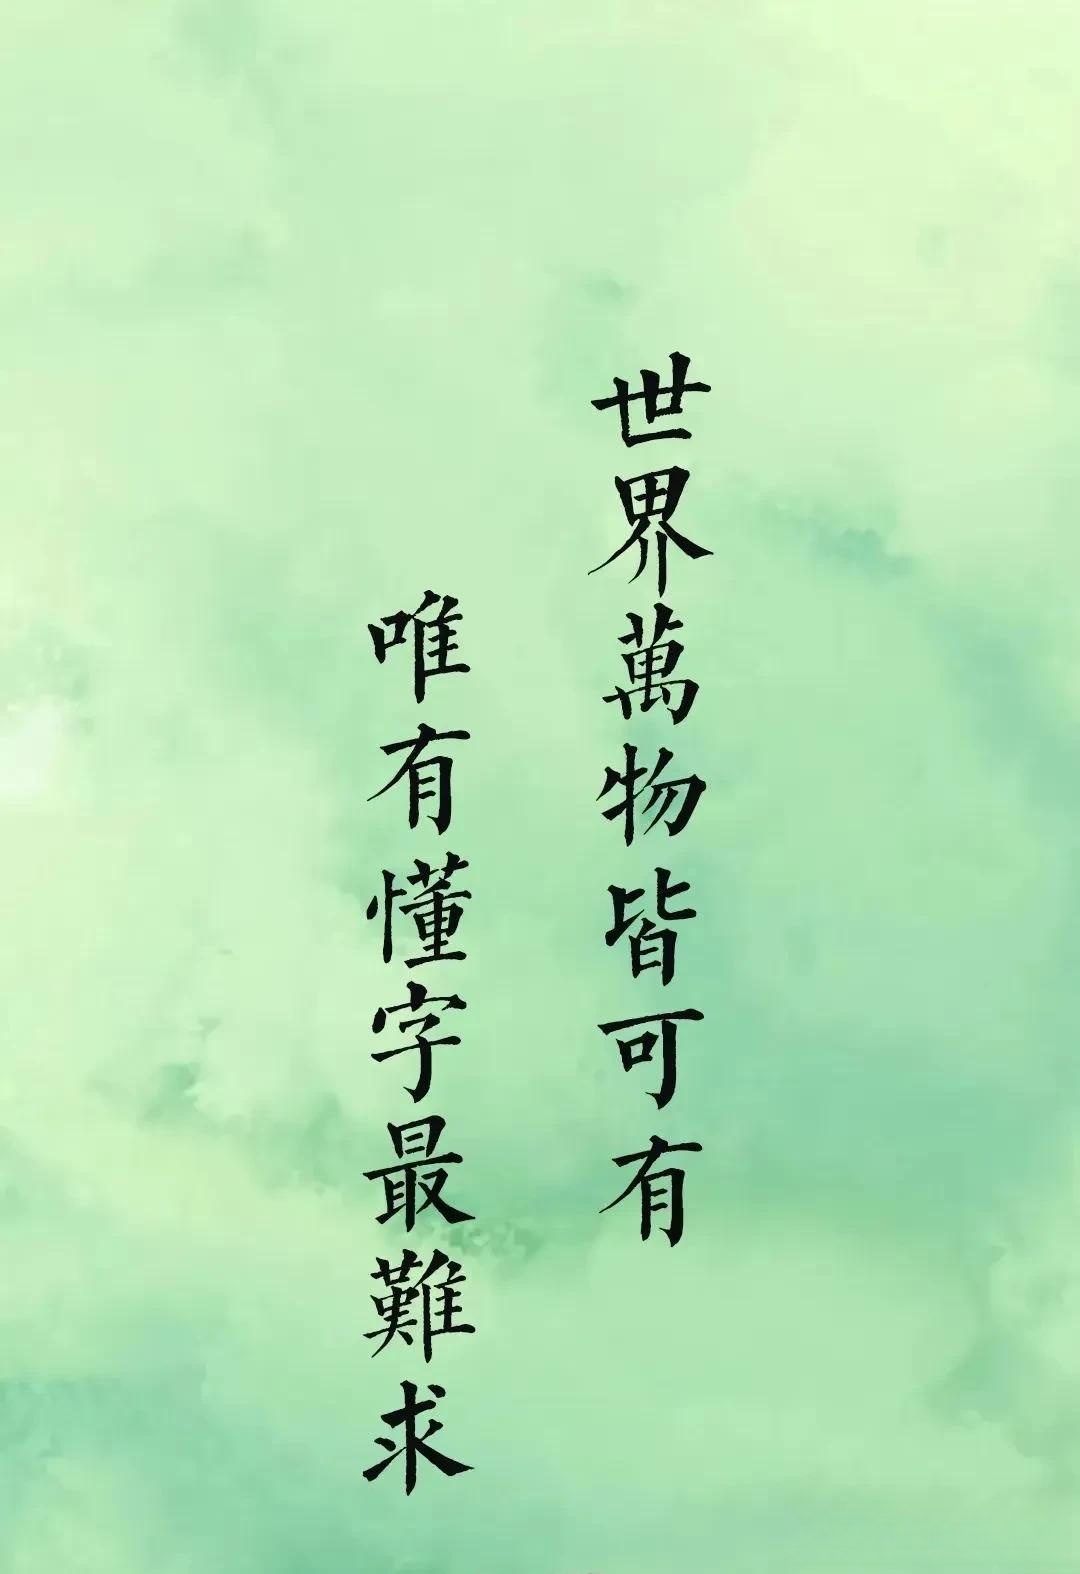 世界萬物皆可有
唯有懂字最難求